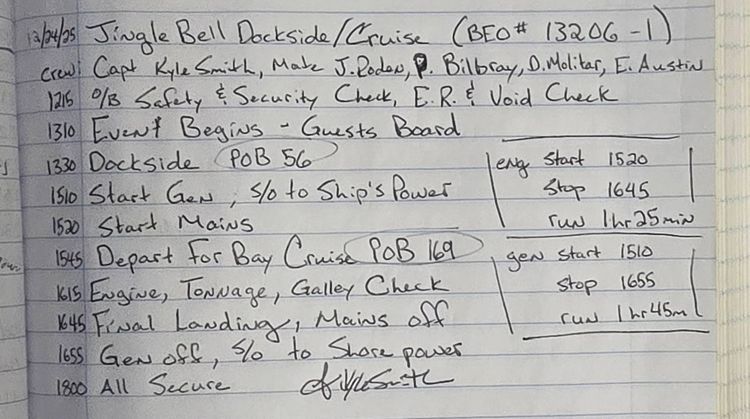 12/24/25 Jingle Bell Dockside/Cruise (BEO# 13206-1)
Crew: Capt Kyle Smith, Mate J. Roden, P. Bilbray, D. Molitar, E. Austin
1215 O/B Safety & Security Check, E.R. & Void Check
1310 Event Begins - Guests Board
1330 Dockside POB 56
1510 Start Gen, S/O to Ship's Power
1520 Start Mains
1545 Depart For Bay Cruise POB 169
1615 Engine, Tonnage, Galley Check
1645 Final Landing, Mains off
1655 Gen off, S/O to Shore power
1800 All Secure Kyle Smith
eng start 1520
stop 1645
run 1hr 25min
gen start 1510
stop 1655
run 1hr 45m